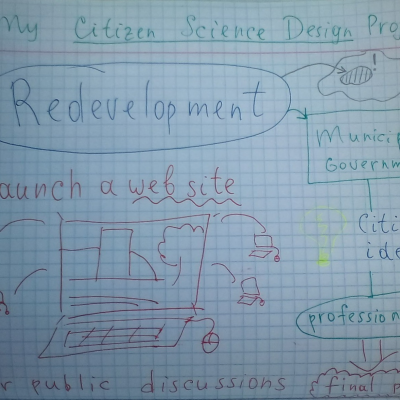 My Citizen Science Design Pro
Redevelopment
!
Municip
Governm
aunch a web site
Citi
ide
profession
r public discussions
final p